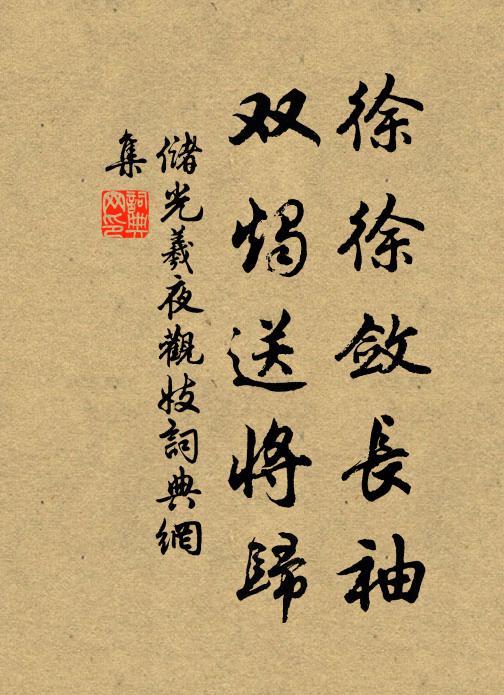 徐徐斂長袖
双燭送將歸
儲光羲夜觀妓詞典網
集
詞典網印